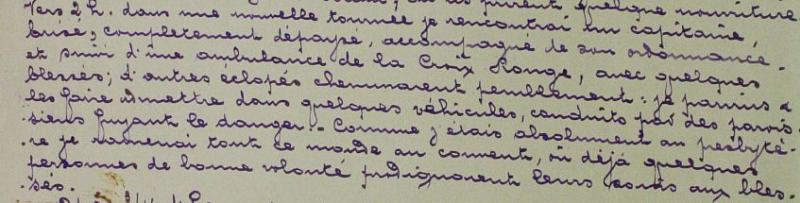 purent quelque nourriture
Vers 2 h. dans une nouvelle tournée je rencontrai un capitaine,
brisé, complètement dépaysé, accompagné de son ordonnance.
et suivi d'une ambulance de la Croix Rouge, avec quelques
blessés; d'autres éclopés cheminaient péniblement: je parvins à
les faire admettre dans quelques véhicules, conduits par des parois-
siens fuyant le danger.- Comme j'étais absolument au presbytè-
-re je ramenai tout ce monde au couvent, où déjà quelques
personnes de bonne volonté prodiguaient leurs soins aux bles-
-sés.